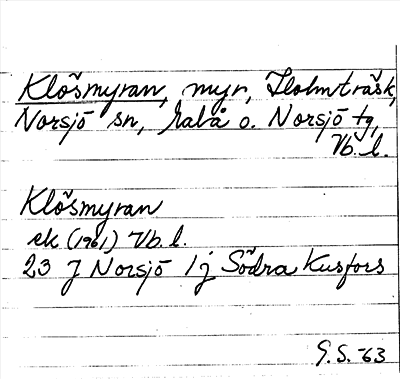 Klösmyran, myr, Holmträsk,
Norsjö sn, Malå o. Norsjö tg,
Vb. l.
Klösmyran
ek (1961) Vb. l.
23 J Norsjö 1 j Södra Kusfors
G. S. -63